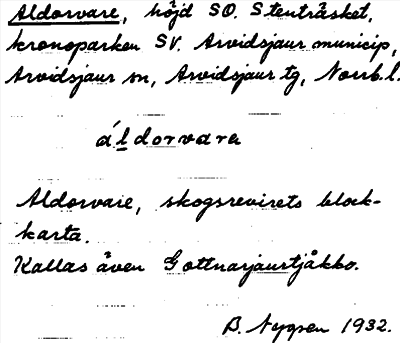 Aldorvare, höjd SO. Stenträsket,
kronoparken SV. Arvidsjaur municip,
Arvidsjaur sn, Arvidsjaur tg, Norrb. l.
áldorvara
Aldorvare, skogsrevirets block-
karta.
Kallas även Gottnarjaurtjåkko.
B. Nygren 1932.